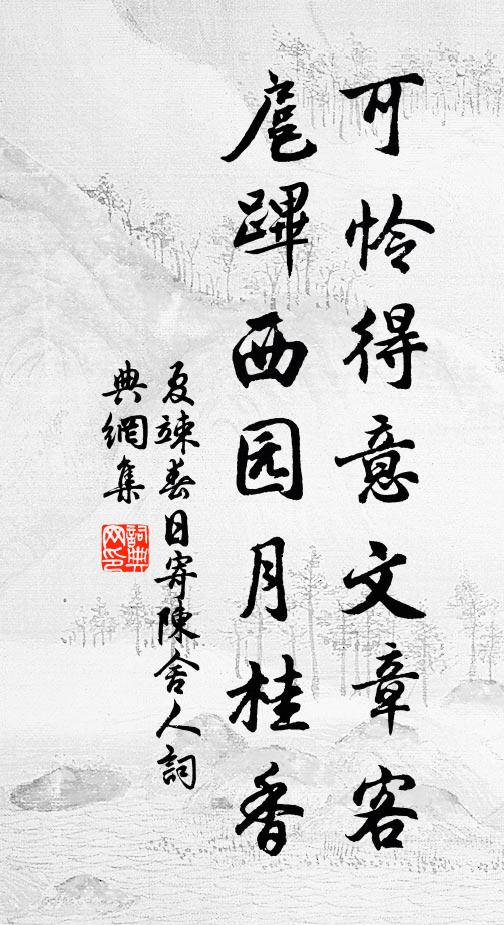 可怜得意文章客
扈蹕西园月桂香
夏竦春日寄陳舍人詞
典網集
詞典网印